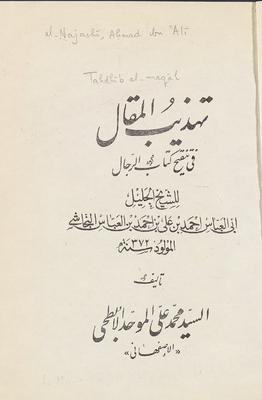 al-Najashī, Ahmad ibn ʿAlī
Tahdhīb al-maqāl
تهذيب المقال
في تنقيح كتاب الرجال
للشيخ الجليل
ابي العباس احمد بن علي بن احمد بن العباس النجاشي
المولود سنة ٣٧٢
تأليف
السيد محمد علي الموحد الأبطحي
«الإصفهاني»